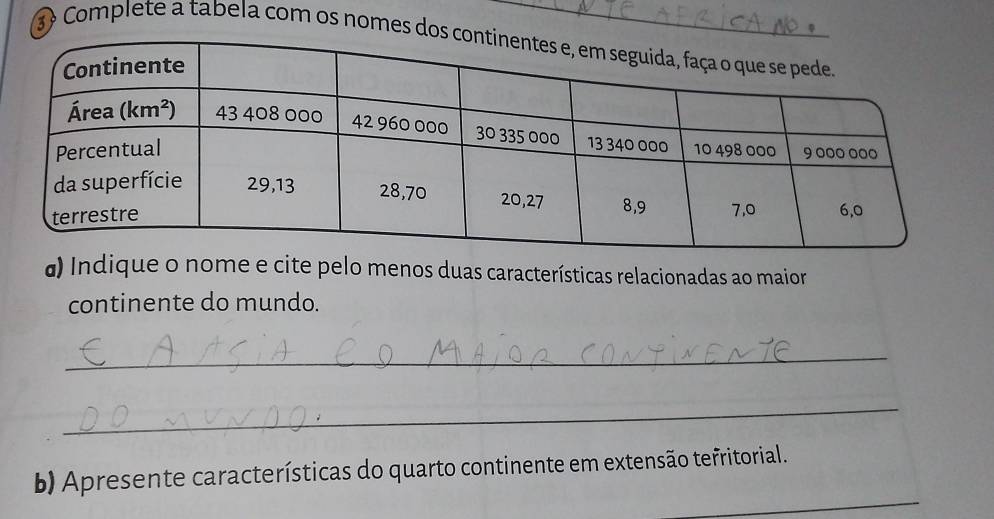 NTE AFRICANO.
3 Complete a tabela com os nomes dos continentes e, em seguida, faça o que se pede.
Continente
Área (km²) 43 408 000 42 960 000 30 335 000 13 340 000 10 498 000 9 000 000
Percentual da superfície terrestre 29,13 28,70 20,27 8,9 7,0 6,0
a) Indique o nome e cite pelo menos duas características relacionadas ao maior
continente do mundo.
E A ASIA e O MAiOR CONTiNENTE
DO MUNDO.
b) Apresente características do quarto continente em extensão territorial.